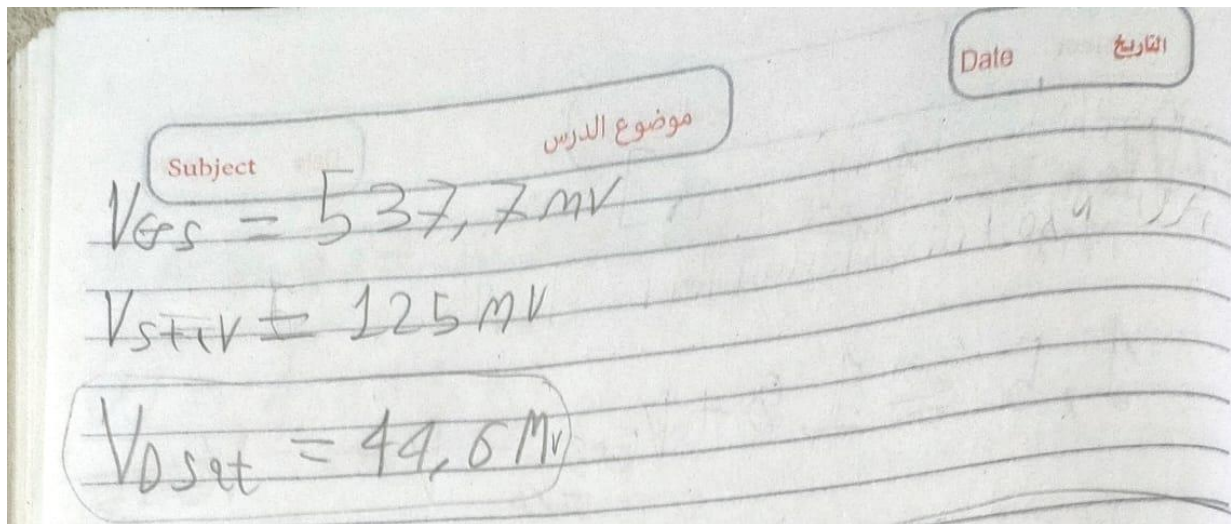 Date التاريخ
Subject موضوع الدرس
VGS = 537,7 mV
Vstiv = 125 mV
VDsat = 44,6 Mv